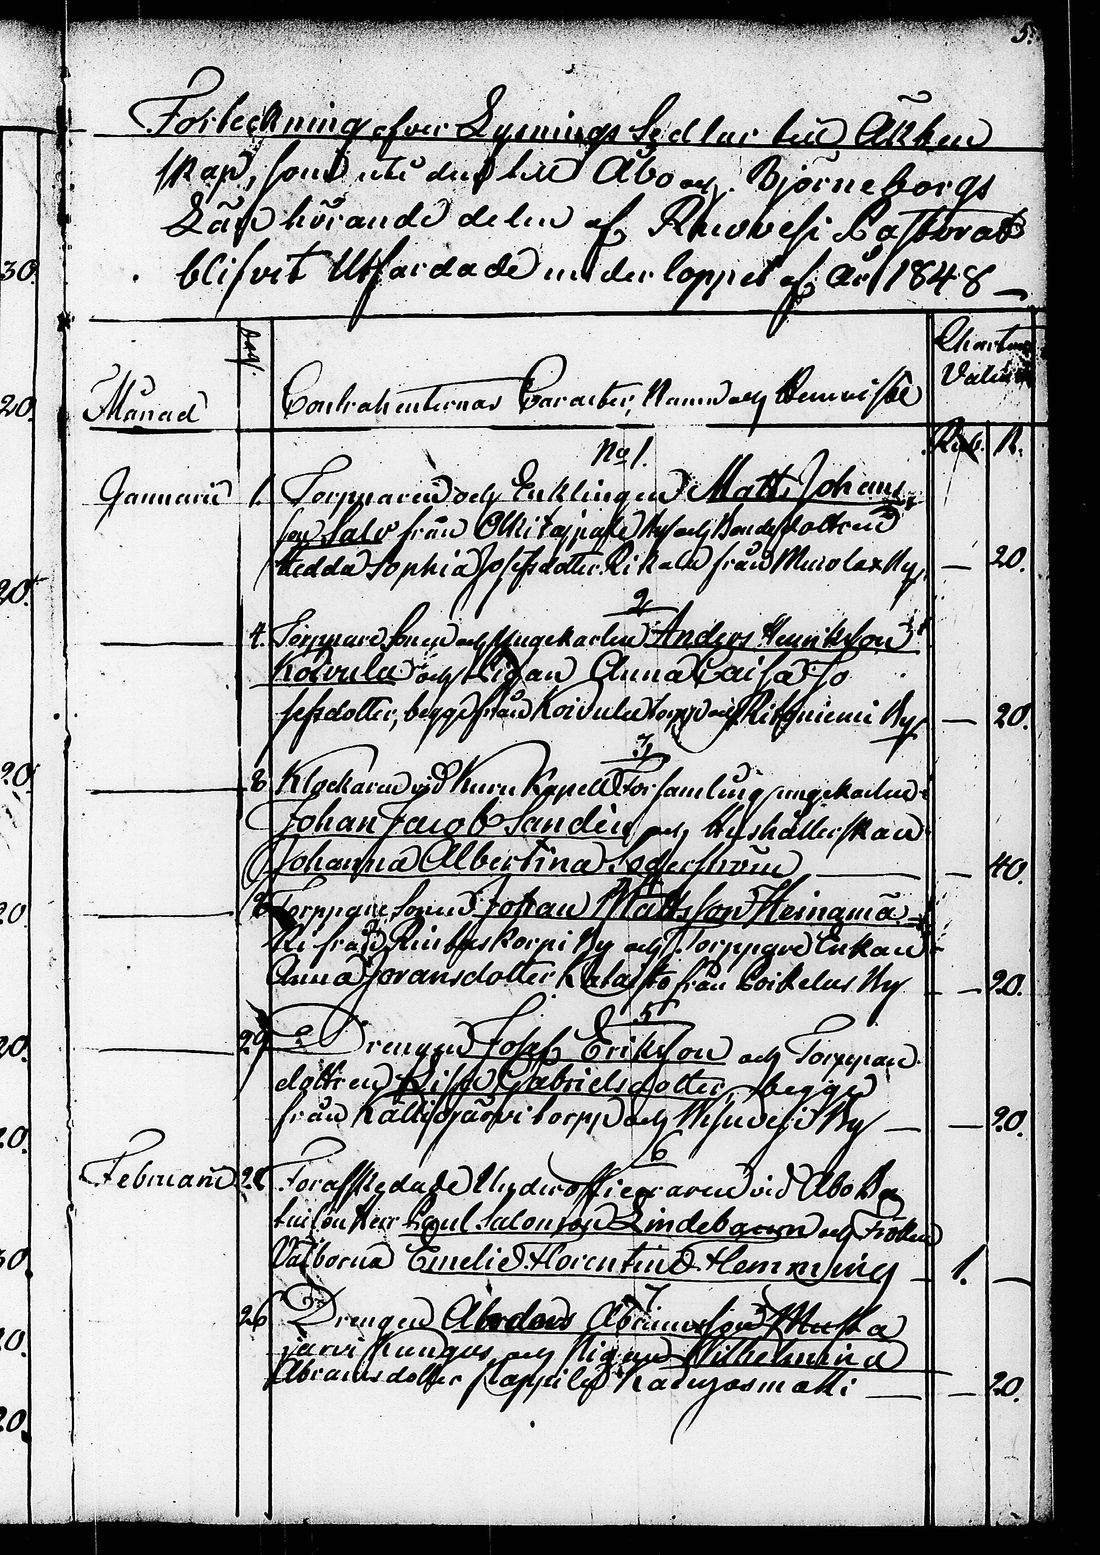 5.
Förteckning öfver Lysnings Sedlar till Äkten
skap, som uti den till Åbo och Björneborgs
Län hörande delen af Ruovesi Pastorat
blifvit Utfärdade under loppet af År 1848
Månad
Dag.
Contrahenternas Caracter, Namn och Hemvist
Charta
Valeur
Rub. K.
No 1.
Januarii 1. Torpparen och Enklingen Matts Johans
son Salo från by och Bondedottren
Hedda Sophia Josefsdotter från Murolax By, — 20.
2
4. Torppare Sonen och Ungekarlen Anders Henriksson
Koivula och Pigan Anna Caisa Jo
sefsdotter, begge från Koivula torpp och By — 20.
3
8. Klockaren vid Kuru Kapell Församling ungekarlen
Johan Jacob Sandén och Hushållerskan
Johanna Albertina Söderström — 40.
4
Torppare Sonen Johan Mattsson Heinämä
ki från By och Torppare Enkan
Anna Göransdotter från By — 20.
5
29. Drengen Josef Eriksson och Torppare
dottren Lisa Gabrielsdotter, begge
från torpp och By — 20.
6
Februarii 21. Förafskedade Underofficeraren vid Åbo Ba
taillon Herr Salomon Lindebaum och Fröken
Välborna Emelie Florentina Hemming — 1. —
7
26 Drengen Abramsson Musta
järvi Kangas och Pigan Wilhelmina
Abramsdotter — 20.